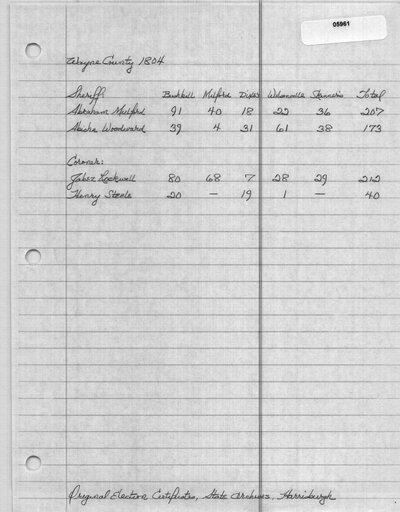 05961
Wayne County 1804
Sheriff: Bushkill Milford Dibles Wilsonville Skinner's Total
Abraham Mulford 91 40 18 22 36 207
Abisha Woodward 39 4 31 61 38 173
Coroner:
Jabez Rockwell 80 68 7 28 29 212
Henry Steele 20 — 19 1 — 40
Original Election Certificates, State Archives, Harrisburgh